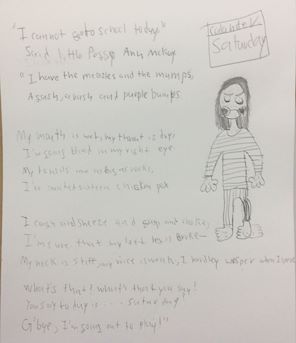 "I cannot go to school today"
Said little Peggy Ann McKay
"I have the measles and the mumps,
A gash, a rash and purple bumps.
Saturday
My mouth is wet, my throat is dry,
I'm going blind in my right eye
My tonsils are as big as rocks,
I've counted sixteen chicken pox
I cough and sneeze and and
I'm sure that my left leg is broke
My neck is stiff, my voice is weak, I hardley wesper when I
What's that? What's that you say?
You say today is .... Saturday
G'bye, I'm going out to play!"